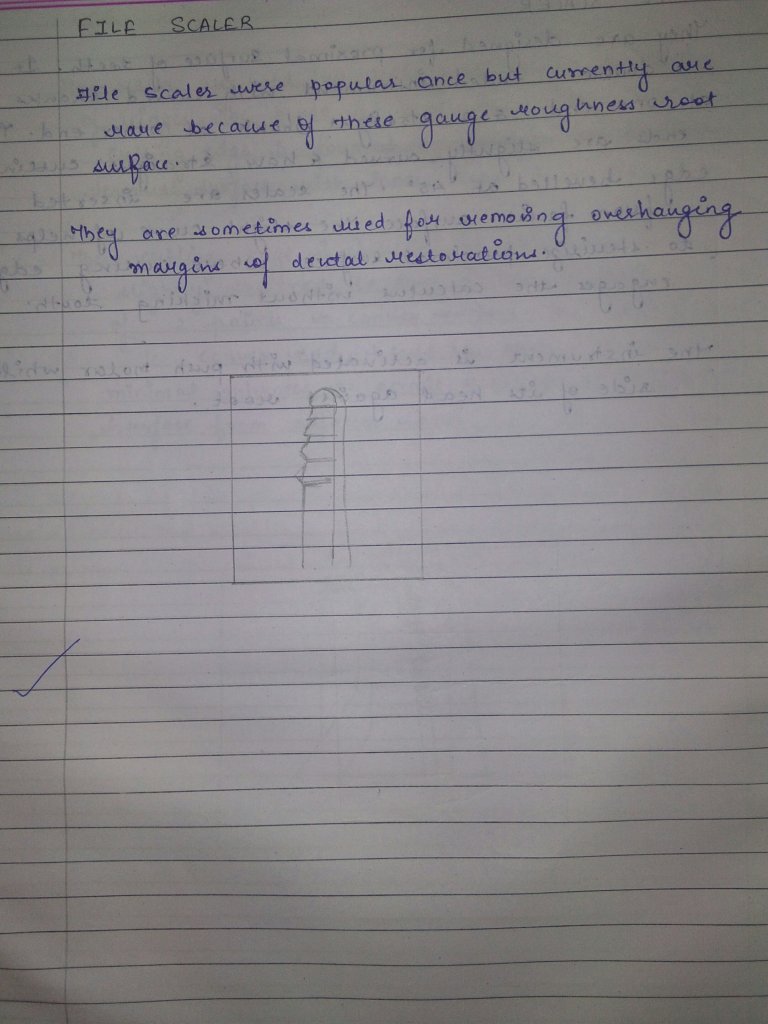 FILE SCALER
File scaler were popular once but currently are
rare because of these gauge roughness root
surface.
They are sometimes used for removing overhanging
margins of dental restorations.